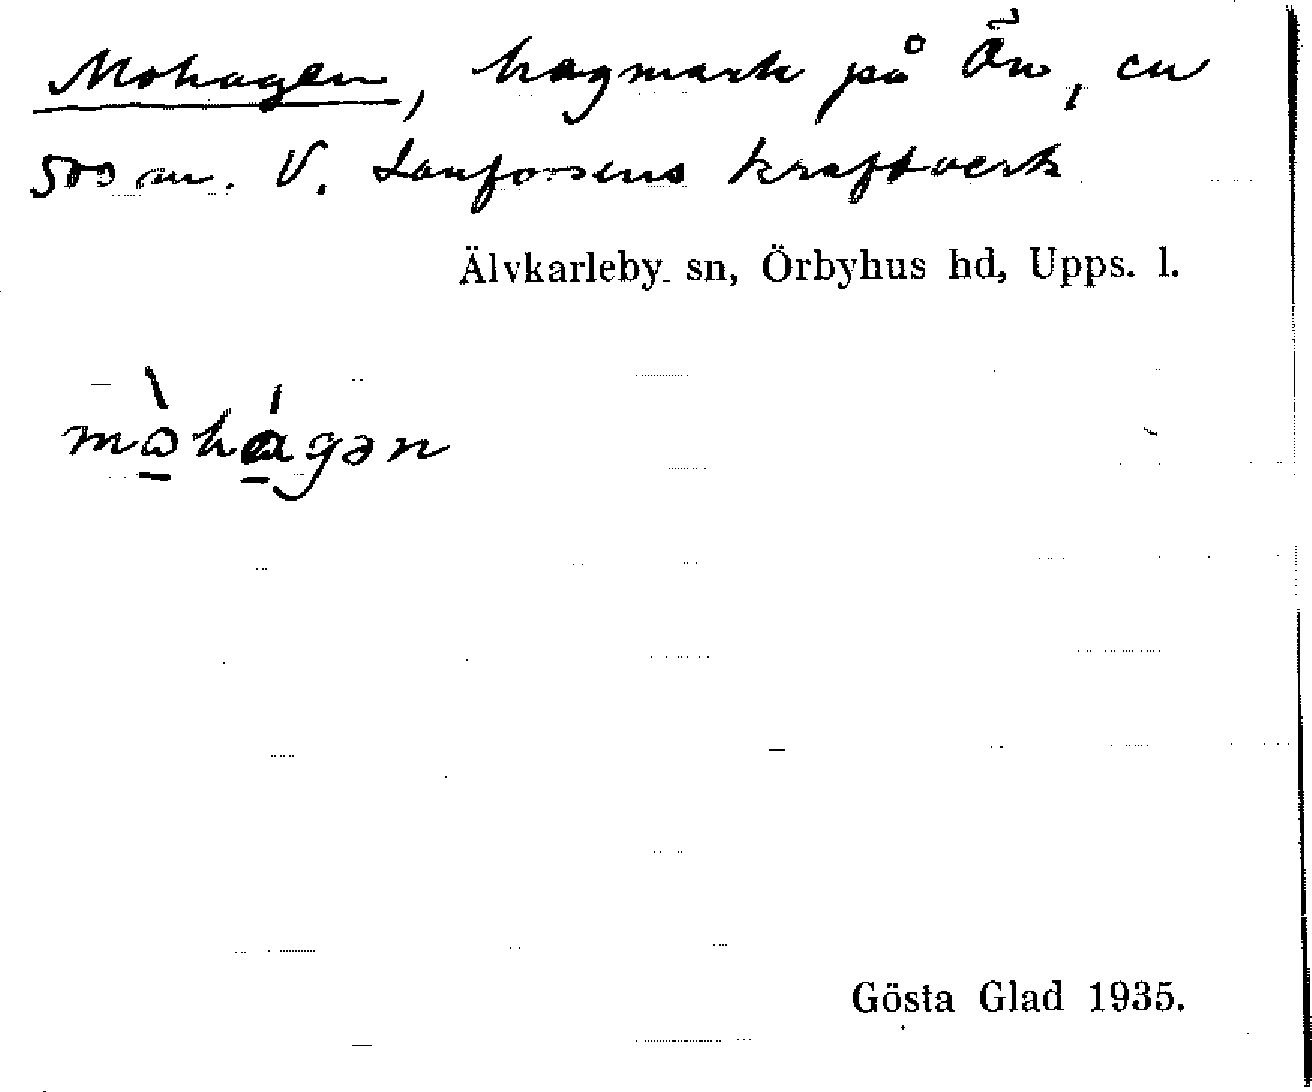 Mohagen, hagmark på Ön, ca
500 m. V. Lanforsens kraftverk
Älvkarleby sn, Örbyhus hd, Upps. l.
mòhágən
Gösta Glad 1935.